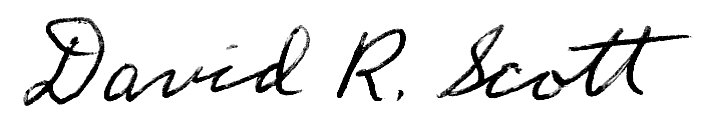 David R. Scott